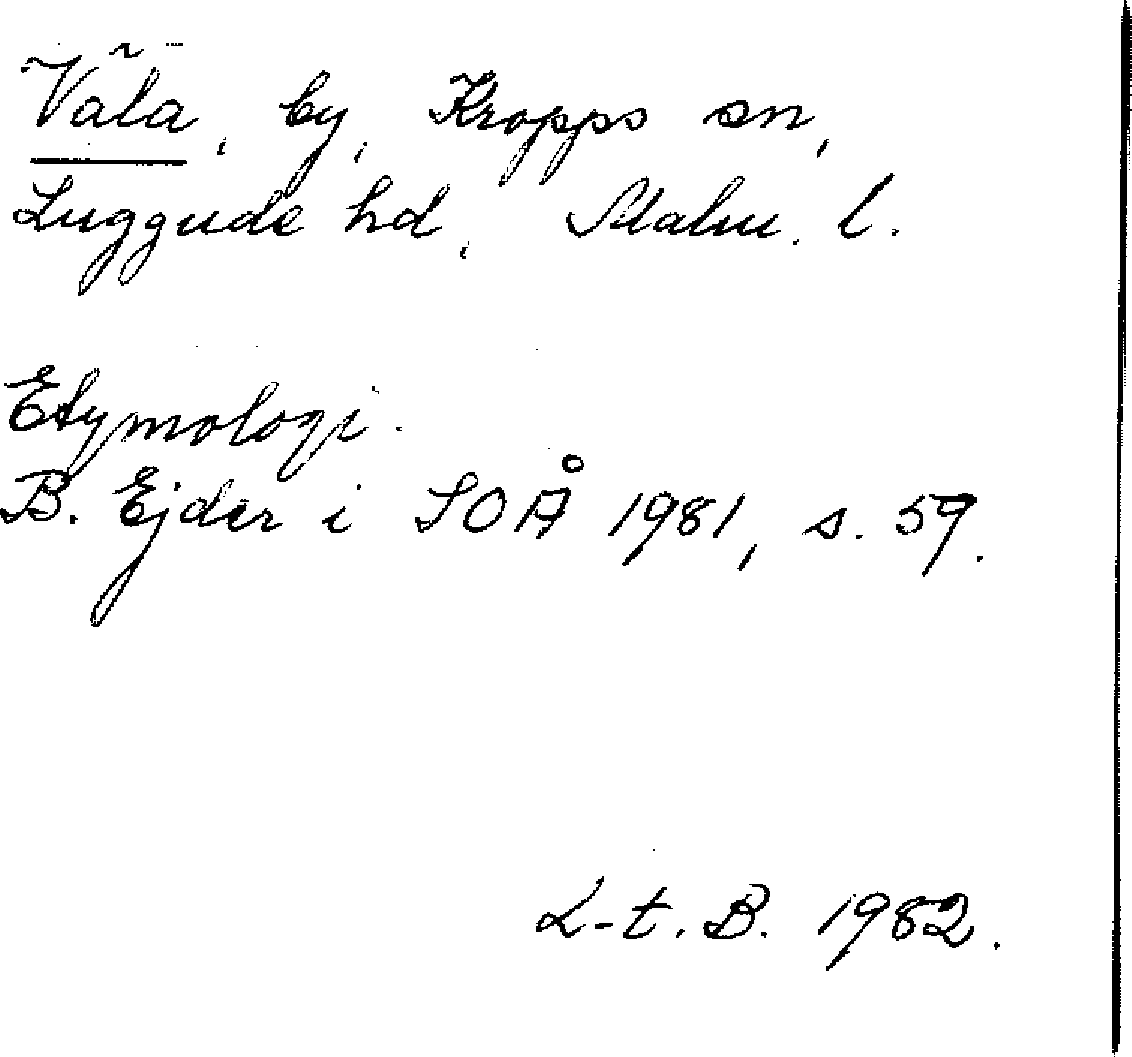 Väla, by, Kropps sn,
Luggude hd, Malm. l.
Etymologi.
B. Ejder i SOÅ 1981, s. 59.
L-t. B. 1982.